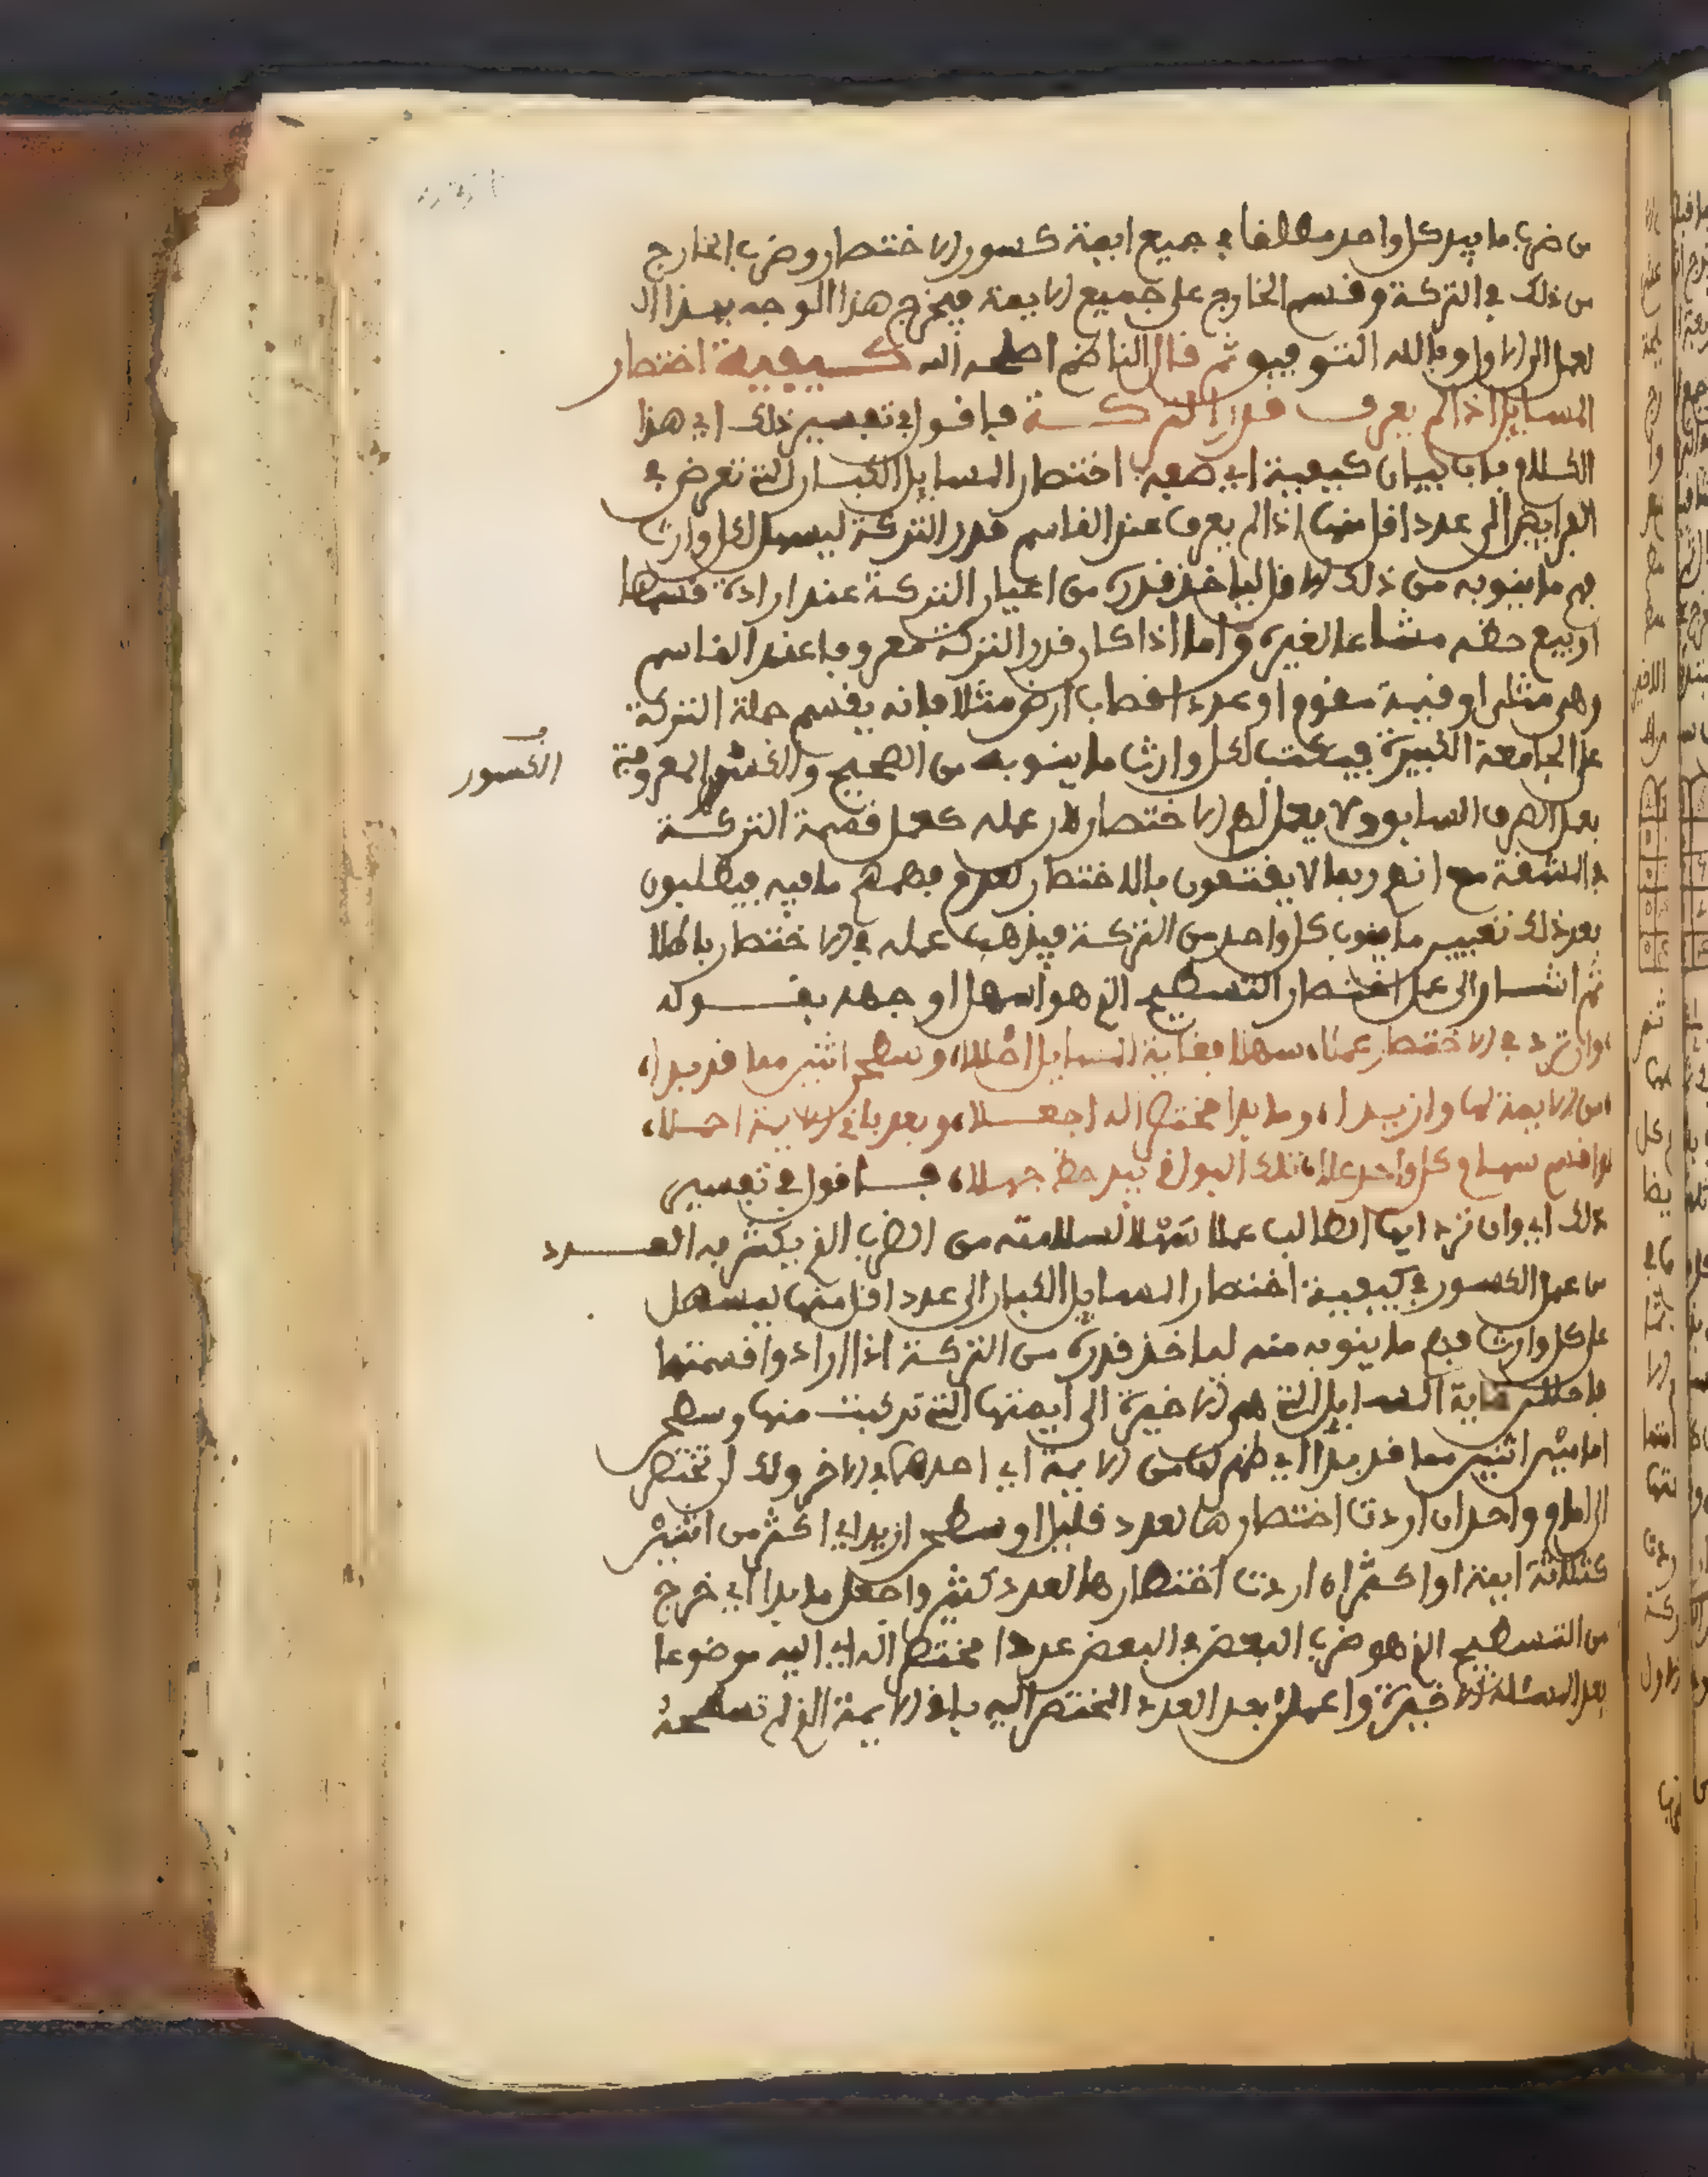 من ضرب ما بيد كل واحد مطلقا في جميع ايمة كسور الاختصار وضرب الخارج
من ذلك في التركة وقسم الخارج على جميع الايمة فيخرج هذا الوجه بهذا ال
لعمل الى الاول وبالله التوفيق ثم قال الناظم اصلحه الله كيفية اختصار
المسايل اذا لم يعرف قدر التركة فاقول في تفسير ذلك اي هذا
الكلام باب بيان كيفية اي صفة اختصار المسايل الكبار التي تعرض في
الفرايض الى عدد اقل منها اذا لم يعرف عند القاسم قدر التركة ليسهل لكل وارث
فهم ما ينوبه من ذلك الاقل لياخذ قدره من اعيان التركة عند ارادة قسمها
او بيع حظه مشاعا لغيره واما اذا كان قدر التركة معروفا عند القاسم
وهي مثلي او قيمة مقوم او عدد اقصاب ارض مثلا فانه يقسم جملة التركة
على الجامعة الكبيرة فيكتب لكل وارث ما ينوبه من الصحيح والكسور المعروفة
الكسور
بعمل الصرف السابق ولا يعمل لهم الاختصار لان عمله كعمل قسمة التركة
في المشقة مع انهم ربما لا يقتنعون بالاختصار لعدم فهمهم ما فيه فيطلبون
بعد ذلك تفسير ما ينوب كل واحد من التركة فيذهب عمله في الاختصار باطلا
ثم اشار الى عمل اختصار التسطيح الذي هو اسهل اوجهه بقوله
وان ترد في الاختصار عملا، سهلا فغاية المسايل احللا، وسطح اثنين مما قد بدا،
من الايمة لها او ازيدا، وما بدا مختصرا له اجعلا، وبعد باقي الايمة احملا،
واقسم سهام كل واحد علا، تلك البواقي بيد حظ جهلا، فاقول في تفسير
ذلك اي وان ترد ايها الطالب عملا سهلا لسلامته من الضرب الذي يكثر به العدد
من عمل الكسور في كيفية اختصار المسايل الكبار الى عدد اقل منها ليسهل
على كل وارث فهم ما ينوبه منه لياخذ قدره من التركة اذا ارادوا قسمتها
فاحللن غاية المسايل التي هي الاخيرة الى ايمتها التي تركبت منها وسطح
امامين اثنين مما قد بدا اي ظهر لك من الايمة اي احدهما في الاخر ولك ان تختصر
الى امام واحد ان اردت اختصارها لعدد قليل او سطح ازيد اي اكثر من اثنين
كثلاثة ايمة او اكثر ان اردت اختصارها لعدد كثير واجعل ما بدا اي خرج
من التسطيح الذي هو ضرب البعض في البعض عددا مختصرا له اي اليه موضوعا
بعد المسئلة الاخيرة واعملن بعد العدد المختصر اليه باقي الايمة الذي لم تسطحه